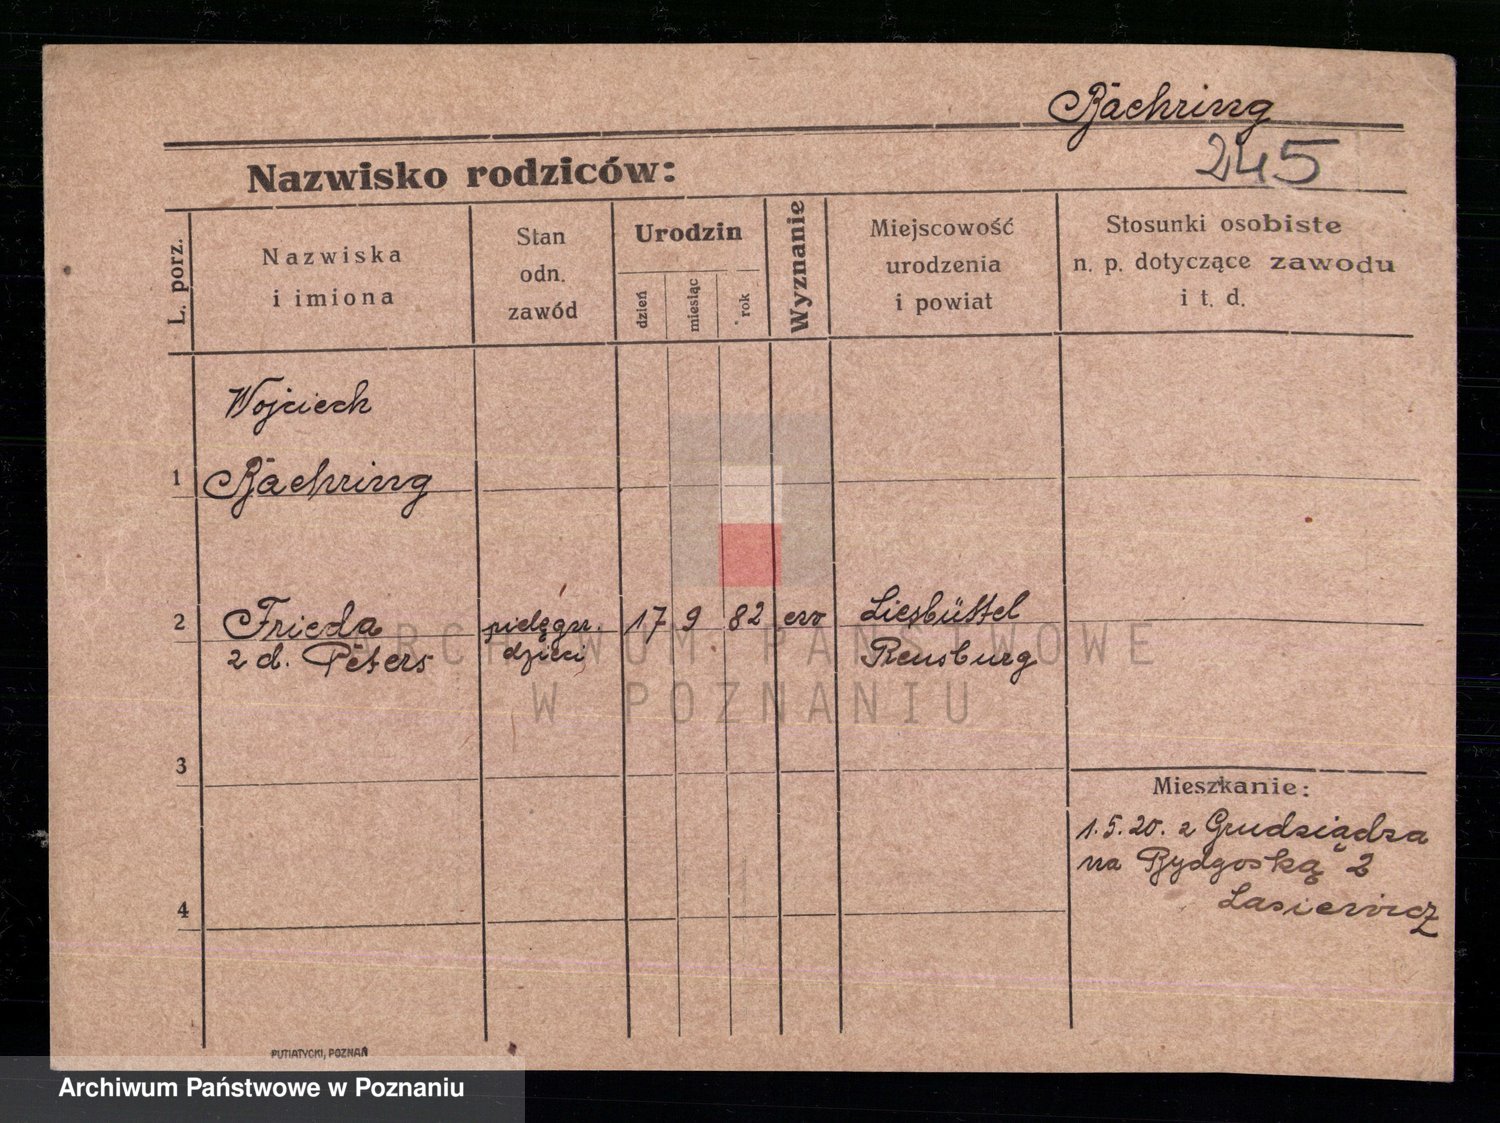 Bachring
245
Nazwisko rodziców:
L. porz.
Nazwiska
i imiona
Stan
odn.
zawód
Urodzin
dzień
miesiąc
rok
Wyznanie
Miejscowość
urodzenia
i powiat
Stosunki osobiste
n. p. dotyczące zawodu
i t. d.
Wojciech
1 Bachring
2 Frieda pielęgn. 17 9 82 ew Liesbüttel
z d. Peters dzieci Rensburg
3
Mieszkanie:
1.5.20. z Grudziądza
na Bydgoską 2
Lasiewicz
4
PUTIATYCKI, POZNAŃ
ARCHIWUM PAŃSTWOWE
W POZNANIU
Archiwum Państwowe w Poznaniu